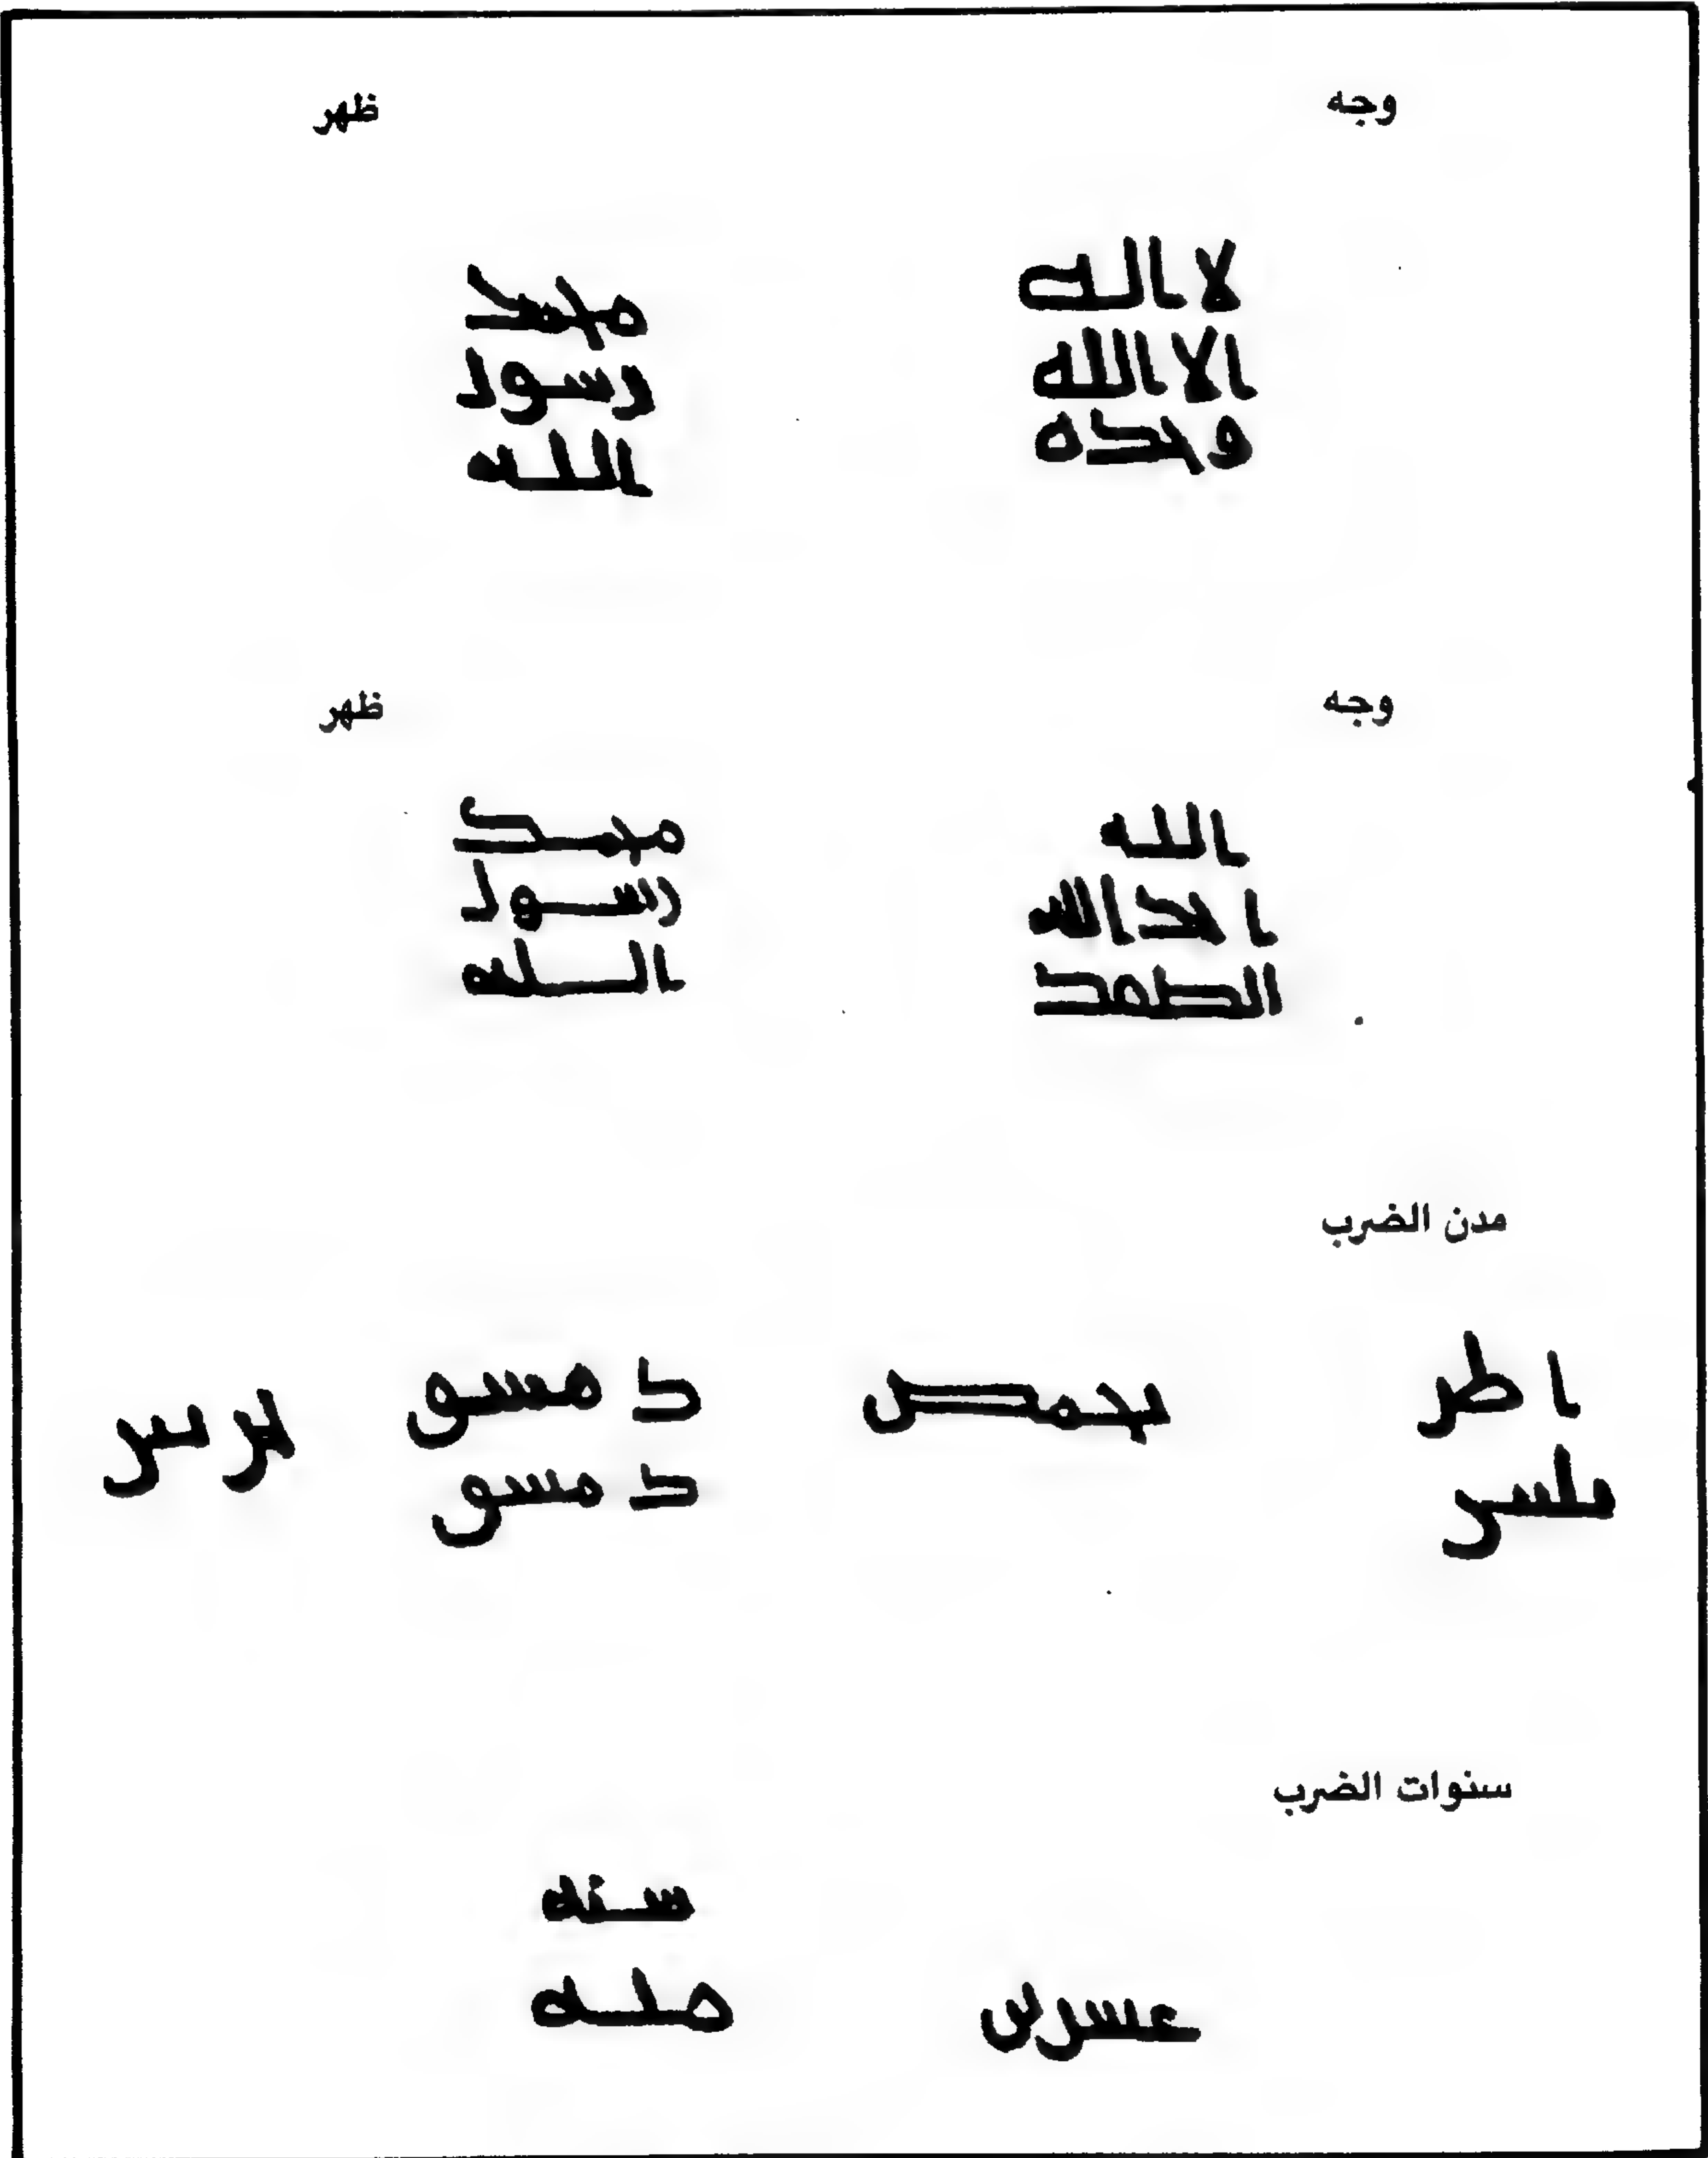 وجه
ظهر
لا اله
الا الله
وحده
محمد
رسول
الله
وجه
ظهر
الله
احد الله
الصمد
محمد
رسول
الله
مدن الضرب
اطر
بلس
بحمص
دمسق
دمسق
سنوات الضرب
سنه
مئه
عسرين